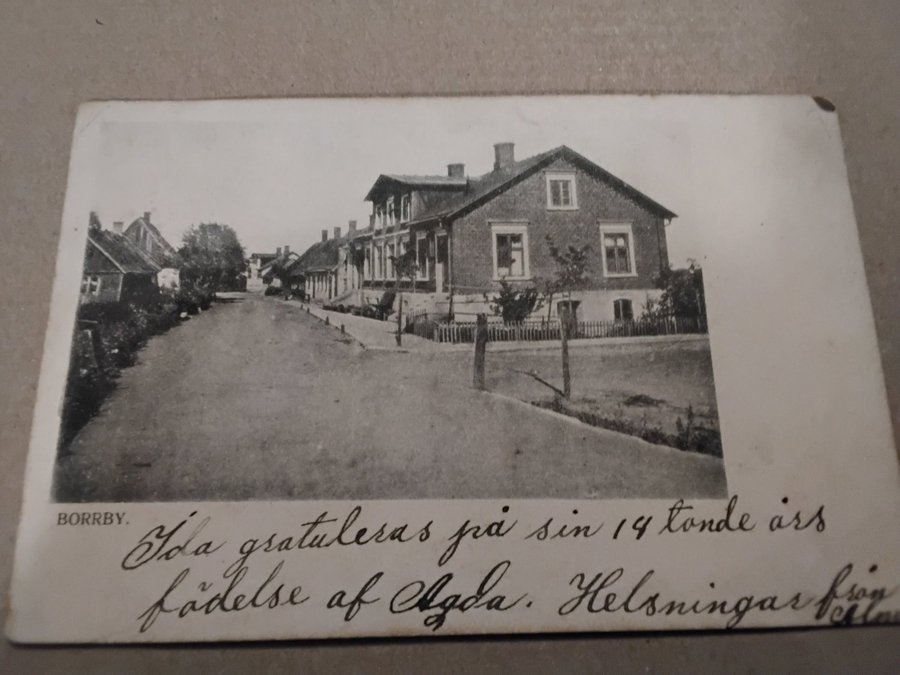 BORRBY.
Ida gratuleras på sin 14 tonde års
födelse af Agda. Helsningar från